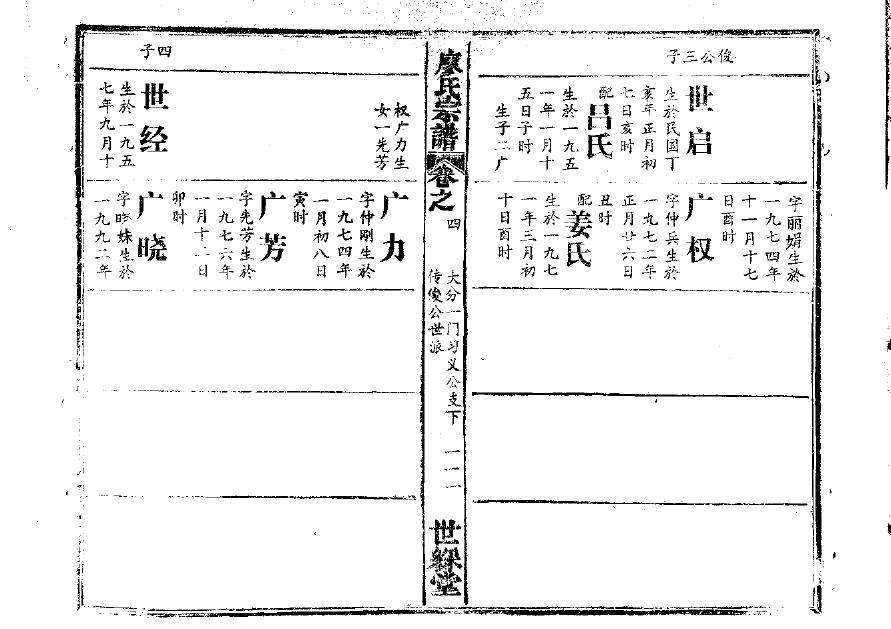 俊公三子
世启
生於民国丁
亥年正月初
七日亥时
配
吕氏
生於一九五
一年一月十
五日子时
生子二广
字丽娟生於
一九七四年
十一月十七
日酉时
广权
字仲兵生於
一九七二年
正月廿六日
丑时
配
姜氏
生於一九七
一年三月初
十日酉时
廖氏宗譜
卷之
四
大分一门习义公支下
传俊公世派
一一一
世綵堂
四子
权广力生
女一先芳
世经
生於一九五
七年九月十
广力
字仲刚生於
一九七四年
一月初八日
寅时
广芳
字先芳生於
一九七六年
一月十二日
卯时
广晓
字晓妹生於
一九九二年